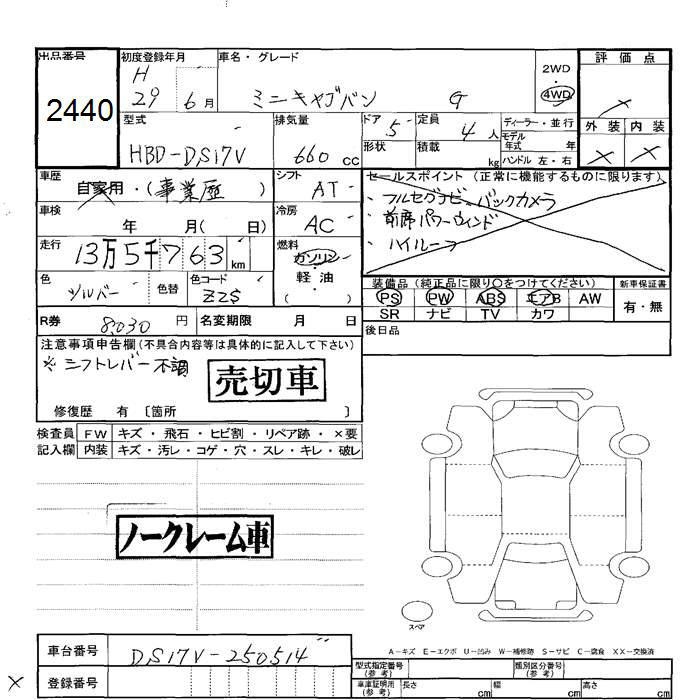 出品番号 初度登録年月 車名・グレード 2WD 評価点
2440 H 29 6月 ミニキャブバン G 4WD ×
外装 内装
× ×
型式 排気量 ドア 5 定員 4人 ディーラー・並行
HBD-DS17V 660cc 形状 積載 kg モデル年式 年
ハンドル 左・右
車歴 自家用・(事業歴) シフト AT セールスポイント (正常に機能するものに限ります)
・フルセグナビ、バックカメラ
・前席パワーウィンド
・ハイルーフ
車検 年 月( 日) 冷房 AC
走行 13万5千763km 燃料 ガソリン・軽油・( )
色 シルバー 色替 色コード ZZS
装備品 (純正品に限り○をつけてください) 新車保証書
PS PW ABS エアB AW 有・無
SR ナビ TV カワ
R券 8,030円 名変期限 月 日 後日品
注意事項申告欄(不具合内容等は具体的に記入して下さい)
※シフトレバー不調
売切車
修復歴 有 〔箇所 〕
検査員 FW キズ・飛石・ヒビ割・リペア跡・×要
記入欄 内装 キズ・汚レ・コゲ・穴・スレ・キレ・破レ
ノークレーム車
スペア
A-キズ E-エクボ U-凹み W-補修跡 S-サビ C-腐食 XX-交換済
車台番号 DS17V-250514
登録番号
型式指定番号(参考) 類別区分番号(参考)
車庫証明用(参考) 長さ cm 幅 cm 高さ cm
×